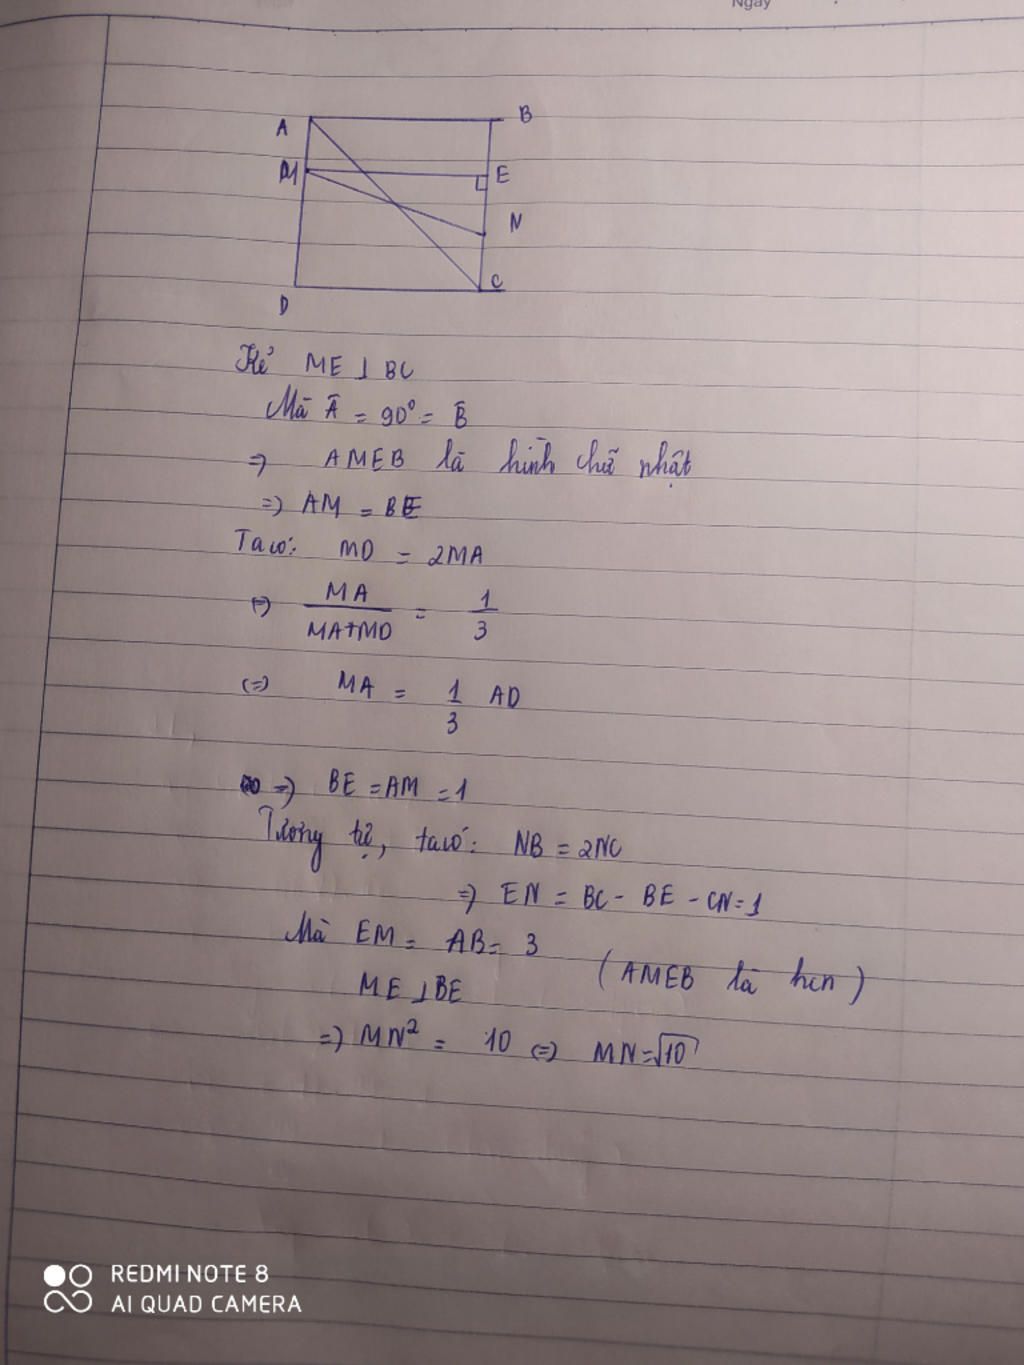 Ngày
A
B
M
E
N
C
D
Kẻ ME ⊥ BC
Mà Â = 90° = B̂
=> AMEB là hình chữ nhật
=> AM = BE
Ta có: MD = 2MA
<=> MA/MA+MD = 1/3
<=> MA = 1/3 AD
=> BE = AM = 1
Tương tự, ta có: NB = 2NC
=> EN = BC - BE - CN = 1
Mà EM = AB = 3 (AMEB là hcn)
ME ⊥ BE
=> MN² = 10 <=> MN = √10
REDMI NOTE 8
AI QUAD CAMERA